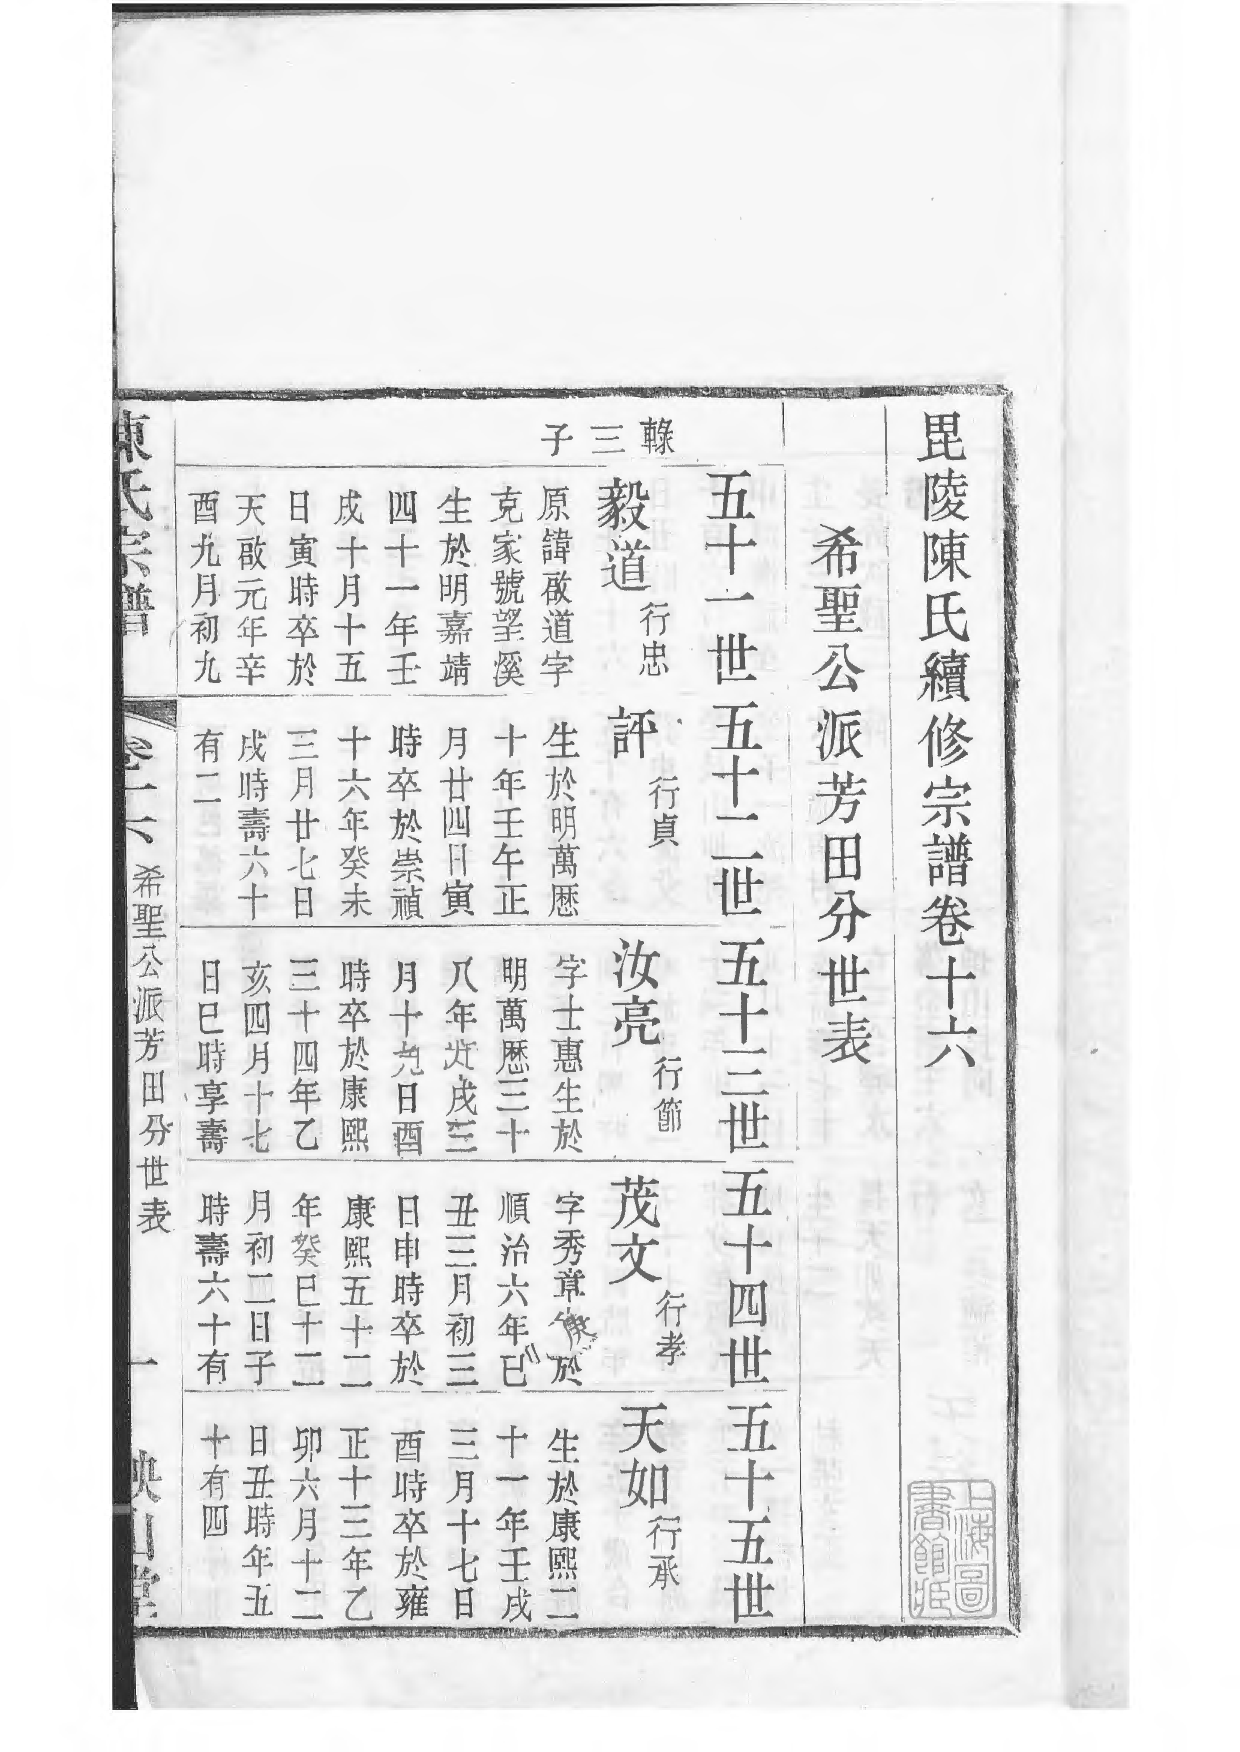 毘陵陳氏續修宗譜卷十六
希聖公派芳田分世表
五十一世
五十二世
五十三世
五十四世
五十五世
轅三子
毅道
行忠
原諱啟道字
克家號望溪
生於明嘉靖
四十一年壬
戌十月十五
日寅時卒於
天啟元年辛
酉九月初九
評
行貞
生於明萬歷
十年壬午正
月廿四日寅
時卒於崇禎
十六年癸未
三月廿七日
戌時壽六十
有二
汝亮
行節
字士惠生於
明萬歷三十
八年戌三
月十九日酉
時卒於康熙
三十四年乙
亥四月十七
日巳時享壽
茂文
行孝
字秀章於
順治六年已
丑三月初三
日申時卒於
康熙五十二
年癸巳十二
月初二日子
時壽六十有
天如
行承
生於康熙二
十一年壬戌
三月十七日
酉時卒於雍
正十三年乙
卯六月十二
日丑時年五
十有四
陳氏宗譜
卷十六
希聖公派芳田分世表
一
映山堂
上海圖
書館藏